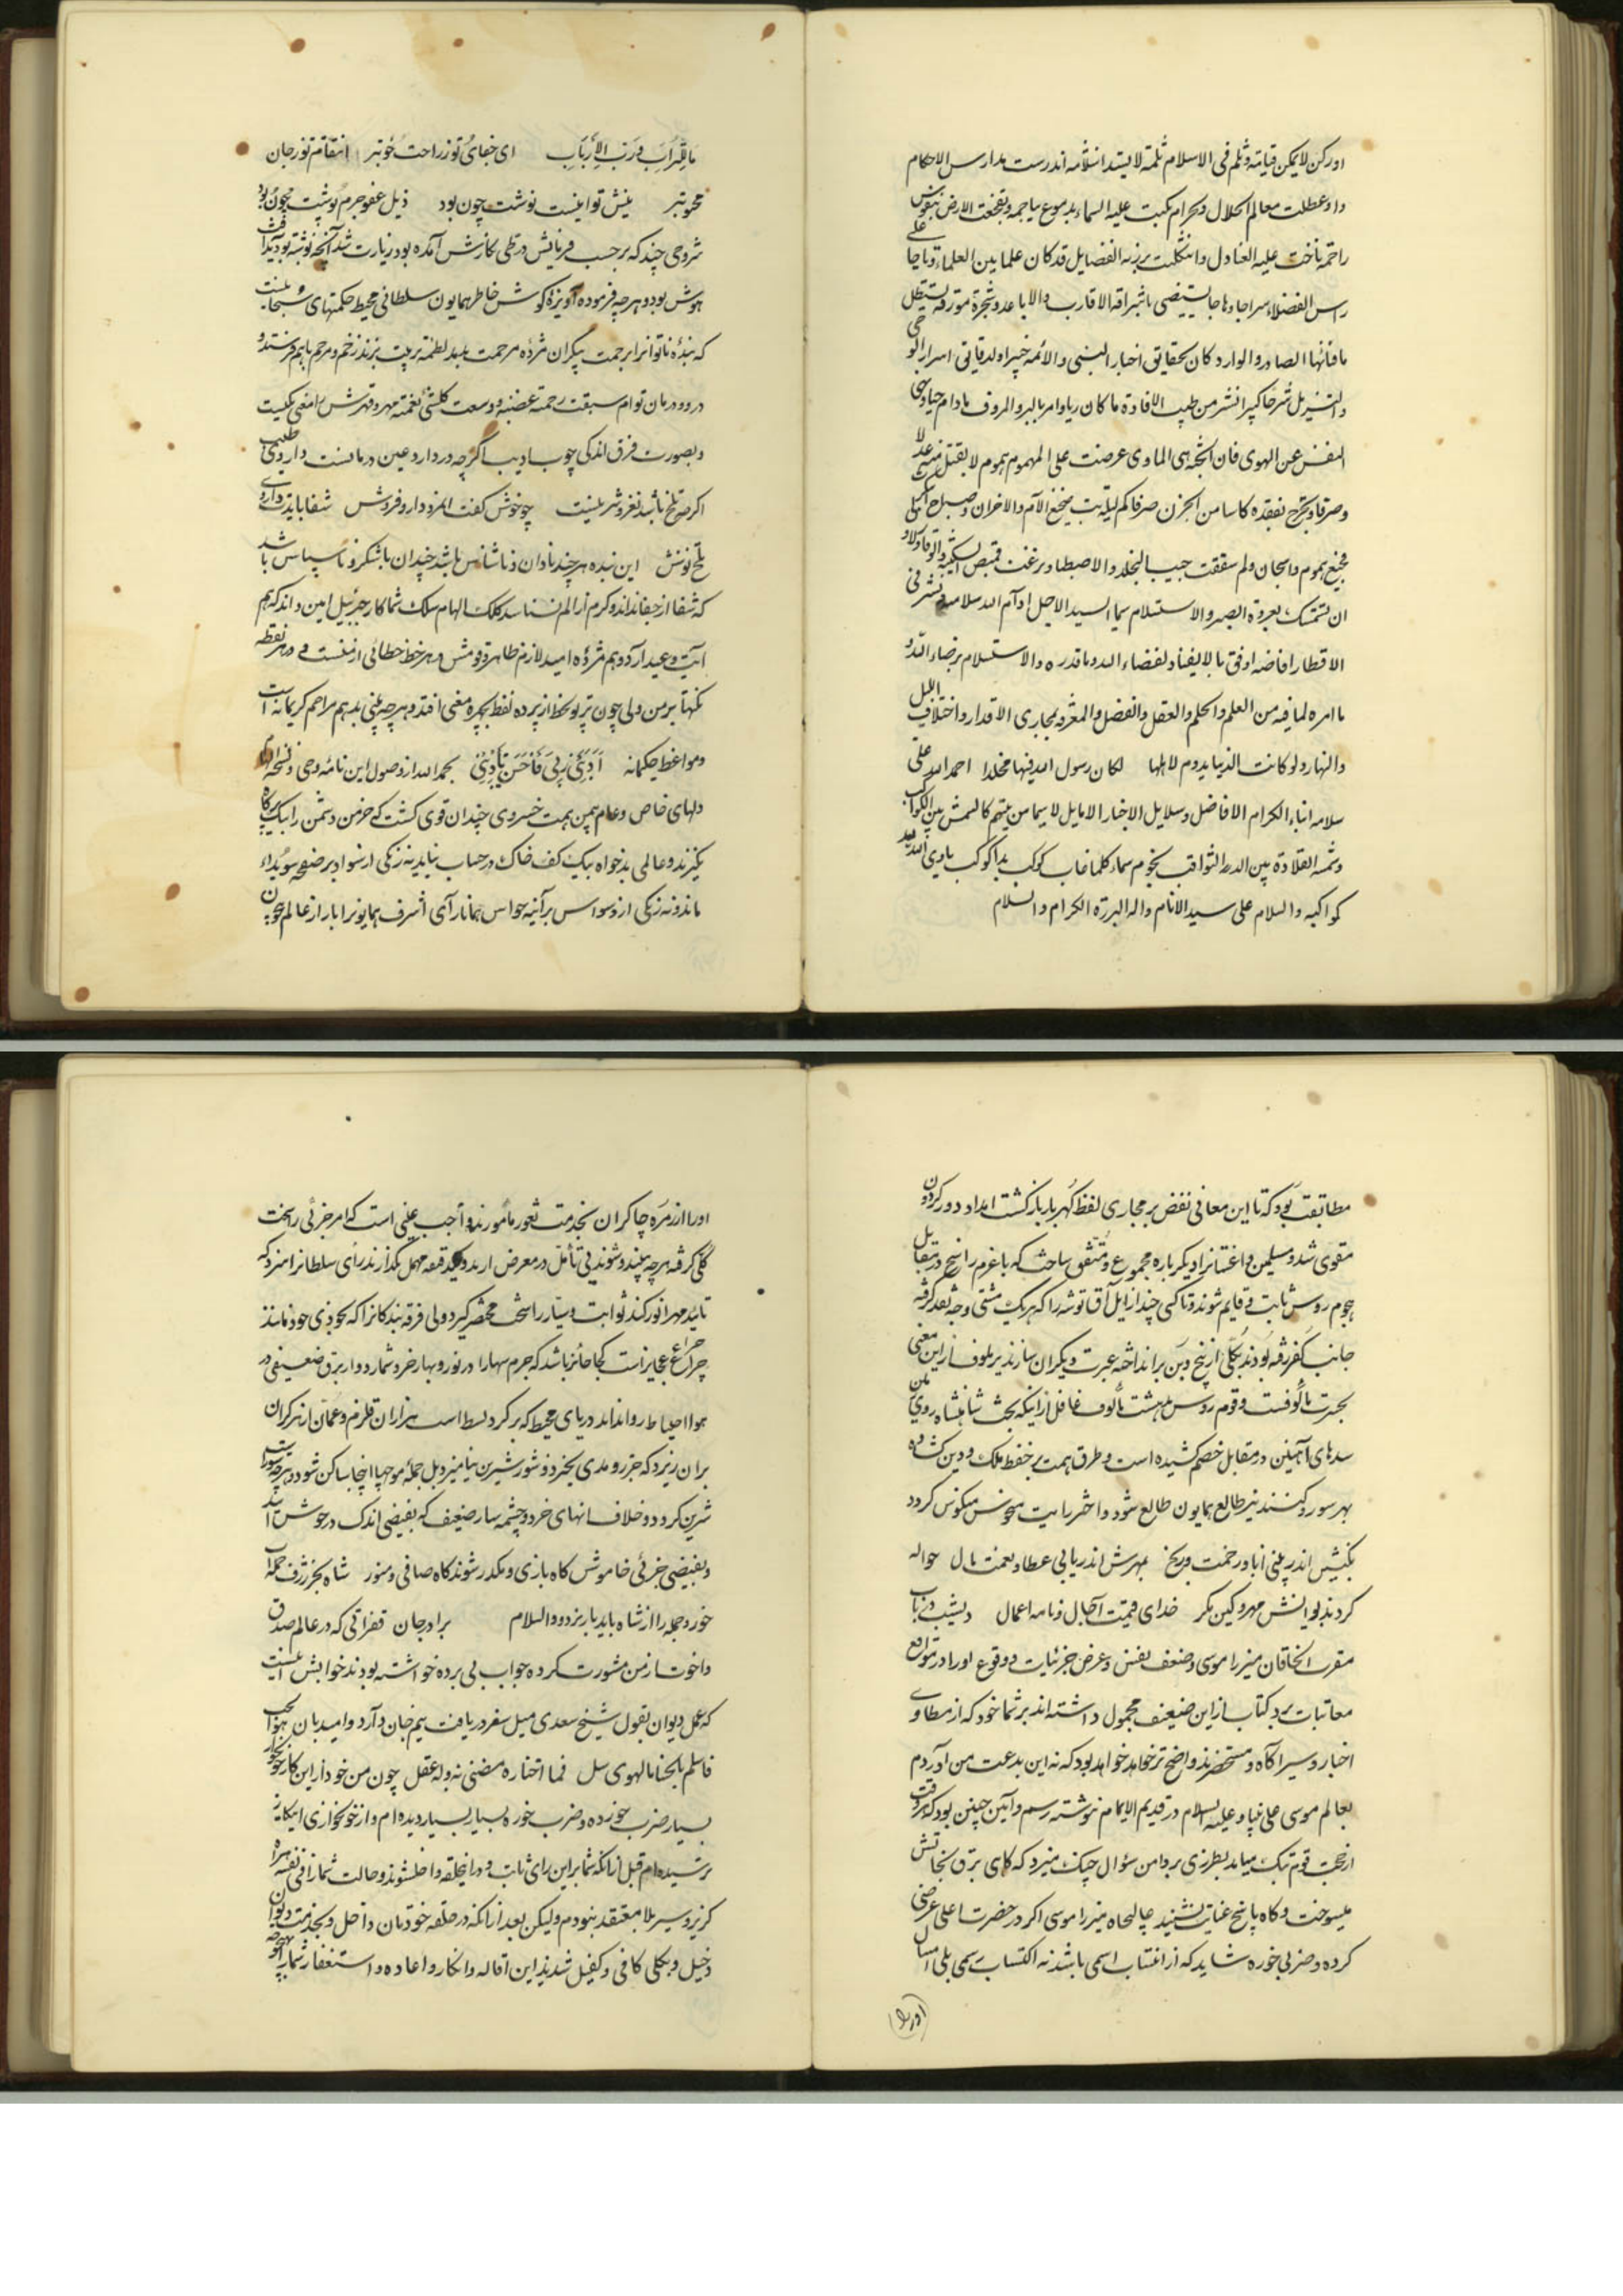 اورکن لایمکن قیامته وثلم فی الاسلام ثلمة لایسد انثلامه اندرست مدارس الاحکام
واو عطلت معالم الحلال والحرام بکت علیه السماء بدموع
راحمه ناخت علیه العنادل وانثکلت برزیه الفضایل قد کان علما بین العلماء وتاجا علی
راس الفضلاء سراجا وهاجا یستضیئ باشراقه الاقارب والاباعد وشجرة مورقه یستظل
بافنانها الصادر والوارد کان بحقایق اخبار النبی والائمه خبیرا ولدقایق اسرار الوحی
والتنزیل
النفس عن الهوی فان الجنة هی الماوی عرضت علی المهموم هموم لایقبل
وصرفا وتجرع بفقده کاسا من الحزن صرفا کم لیلة یبیت الآلام والاحزان وصباح
هموم واشجان ولم شققت جیب التجلد والاصطبار
ان لتمسک بعروة الصبر والاستسلام سیما السید الاجل ادام الله سلامه ونشر فی
الاقطار افاضه اوفق بالایفاد لقضاء الله وما قدره والاستسلام برضاء الله و
ما امره لما فیه من العلم والحلم والعقل والفضل والمعرفه بمجاری الاقدار واختلاف اللیل
والنهار ولو کانت الدنیا یدوم لاهلها لکان رسول الله فیها مخلدا احمد الله علی
سلامه ابناء الکرام الافاضل وسلایل الاخیار الامایل لاسیما من بینهم کالشمس بین الکواکب
وتمة القلادة بین الدر الثواقب نجوم سماء کلما غاب کوکب بدا کوکب یاوی الیه
کواکبه والسلام علی سید الانام واله البررة الکرام والسلام
ما للتراب ورب الارباب ای جفای تو ز راحت خوبتر انتقام تو ز جان
محبوبتر نیش تو اینست نوشت چون بود ذیل عفو جرم پوشت چون بود
شروحی چند که بر حسب فرمایش در طی نگارش آمده بود زیارت شد آنچه نوشته بود
هوش بود و هرچه فرموده آویزه گوش خاطر همایون سلطانی محیط حکمتهای سبحانیست
که بنده ناتوان را برحمت بیکران مژده مرحمت بلند لطمه تربیت بزند زخم و مرهم باهم فرستد و
درد و درمان توام سبقت رحمته غضبه و وسعت کلشئ نعمته مهر و قهرش را معنی یکیست
وبصورت فرق اندکی چوب ادیب اگرچه درد آرد عین درمانست داروی طبیب
اگرچه تلخ باشد نغز و شیرینست چه خوش گفت آنمرد دارو فروش شفا بایدت داروی
تلخ نوش این بنده هر چند نادان و ناشناس باشد چندان ناشکر و ناسپاس باشد
که شفا از جفا نداند و کرم از الم نشناسد کلک الهام سلک شما کار جبرئیل امین داند که هم
آیت وعید آرد و هم مژده امید لازم ظاهر قومش و هر خط خطائی از منست و در هر نقطه
نکتها بر من ولی چون پرتو لحظ از پرده لفظ بچهره معنی افتد و هرچه بینی بدهم مراحم کریمانه است
ومواعظ حکیمانه اَدَّبَنی رَبّی فَاَحسَنَ تَأدیبی بحمد الله از وصول این نامه وحی و نسخه الهام
دلهای خاص و عام بیمن همت خسروی چندان قوی گشت که خرمن دشمن را بیک پر کاه
نگیرند و عالمی بدخواه بیک کف خاک در حساب نیاید نه زنگی از سواد بر صفحه سویداء
ماند و نه زنگی از وسواس بر آینه حواس همانا رآی اشرف همایونرا بار از عالم چون
مطابقت بود که تا این معانی نقض بر مجاری لفظ گهربار باز گشت امداد دور گردون
مقوی شد و مسلیمین و داغستانرا دیگر باره مجموع و متفق ساخت که با عزم راسخ در مقابل
هجوم روس ثابت و قایم شوند و تا کسی چند از ایل آق توشه را که هریک مشتی وجه نقد گرفته
جانب کفر رفته بودند بکلی از بیخ و بن برانداخته عبرت دیگران سازند
بحسرت مألوفست و قوم روس بدهشت مألوف غافل از اینکه بخت شاهنشاه روی زمین
سدهای آهنین در مقابل خصم کشیده است و طرق همت بر حفظ ملک و دین گشاده
بهر سو رو کنند نیر طالع همایون طالع شود و اختر رایت منحوس منکوس گردد
بکینش اندر بینی انباء رحمت و رنج بمهرش اندر یابی عطاء و نعمت مال حواله
کردند بدو انش مهر و کین مگر خدای قسمت آجال و نامه اعمال
مقرب الخاقان میرزا موسی و ضعف نفس و عرض جزئیات و وقوع او را در مواقع
معاتبات برد کتاب از این ضعیف محمول داشته‌اند بر شما خود که از مطاوی
اخبار و سیر آگاه و مستحضرید واضح تر خواهد بود که نه این بدعت من آوردم
بعالم موسی علی نبینا و علیه السلام در قدیم الایام نوشته رسم و آیین چنین بود که هر وقت
از جهت قوم تنگ میامد بطرزی بر دامن سؤال چنگ میزد که گاهی برق نجاتش
میسوخت و گاه پاسخ عنایت میشنید عالیجاه میرزا موسی اگر در حضرت اعلی عرضی
کرده و ضربی خورده شاید که از اغتساب اسمی باشد نه اکتساب رسمی بلی امسال
اورا
اورا از زمره چاکران بخدمت ثغور مأمورند و اجب عینی است که امر جزئی را سخت
کلی گرفته هرچه بینند و شوند بی تأمل در معرض آرند و یکدقیقه مهمل نگذارند رأی سلطانرا منزه که
تابید مهر انور کند ثوابت و سیار را سخت محتضر گیرد ولی فرقه بندگانرا که بخودی خود مانند
چراغ عجایز است کجا جائز باشد که جرم سها را در نور و بها خرد شمارد و از برق ضعیفی در
هوا احتیاط روا نداند دریای محیط که بر گرد بسط است هزاران قلزم و عمان از هر کران
بر آن ریزد که جزر و مدی نخیزد و شور و شیرین نیامیزد بل جمله موجها اینجا ساکن شود
شیرین گردد و خلاف آنهای خرد و چشمه‌سار ضعیف که بفیضی اندک در جوش آید
و بفیضی جزئی خاموش گاه بازی و مکدر شوند گاه صافی و منور شاه بحر ژرف جمله
خورد و جمله را از شاه باید باز برد و السلام برادر جان فقراتی که در عالم صدق
و اخوت از من مشورت کرده جواب بی پرده خواسته بودند خوابش اینست
که عمل دیوان بقول شیخ سعدی میل سفر دریاست بیم جان دارد و امید نان هو الحب
فاسلم بالحشا ما الهوی سهل فما اختاره مضنی به وله عقل چون من خود از این کار خونخوار
بسیار ضرب خورده و ضرب خورده بسیار بسیار دیده‌ام و از خونخواری اینکار
ترسیده‌ام قبل از آنکه شما بر این رای ثابت و در اینحلقه داخل شوند و حالت شما را فی نفسه
گزیر و سیر بلا معتقد نبودم ولیکن بعد از آنکه در حلقه خودمان داخل و بخدمت دیوان
دخیل و بکلی کافی و کفیل شدید این اقاله و انکار و اعاده و استغفار شما را